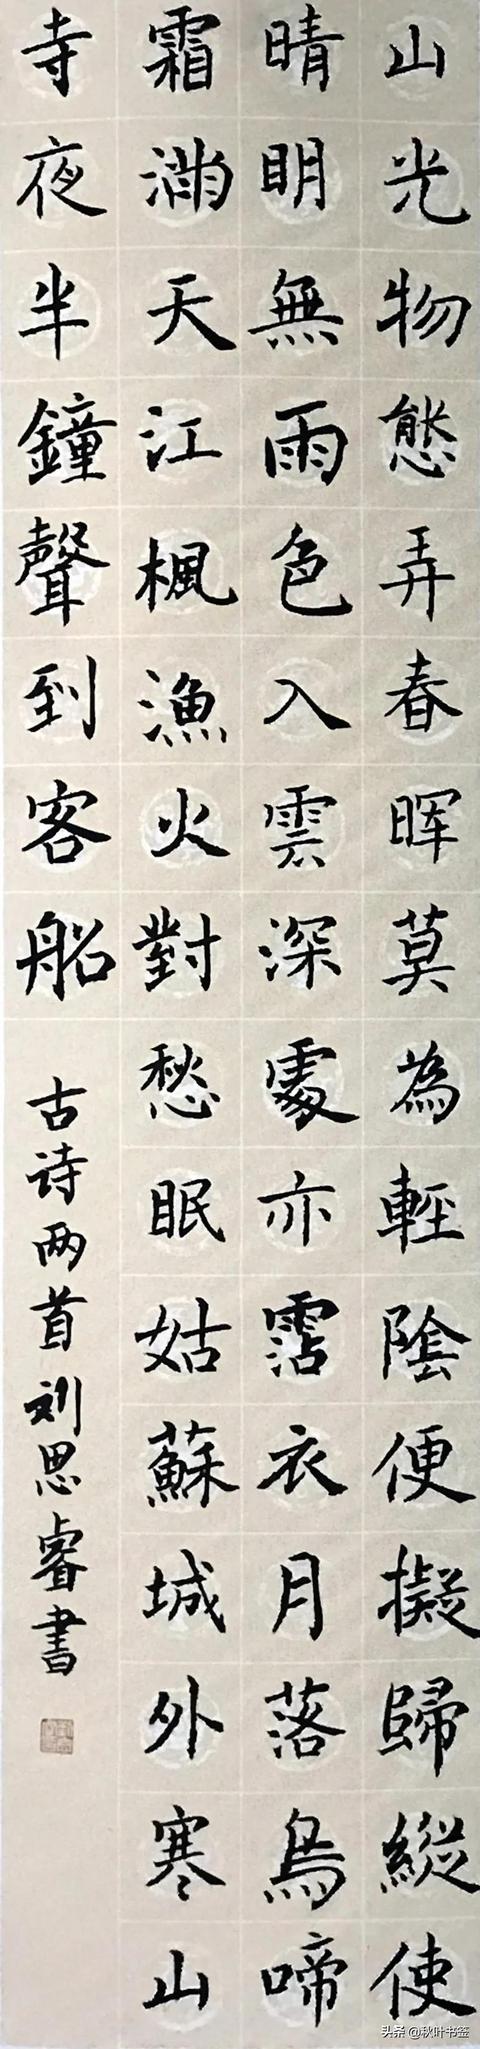 山光物態弄春晖莫為輕陰便擬歸縱使
晴明無雨色入雲深處亦霑衣月落烏啼
霜滿天江楓漁火對愁眠姑蘇城外寒山
寺夜半鐘聲到客船
古诗两首刘思睿書
头条 @秋叶书签